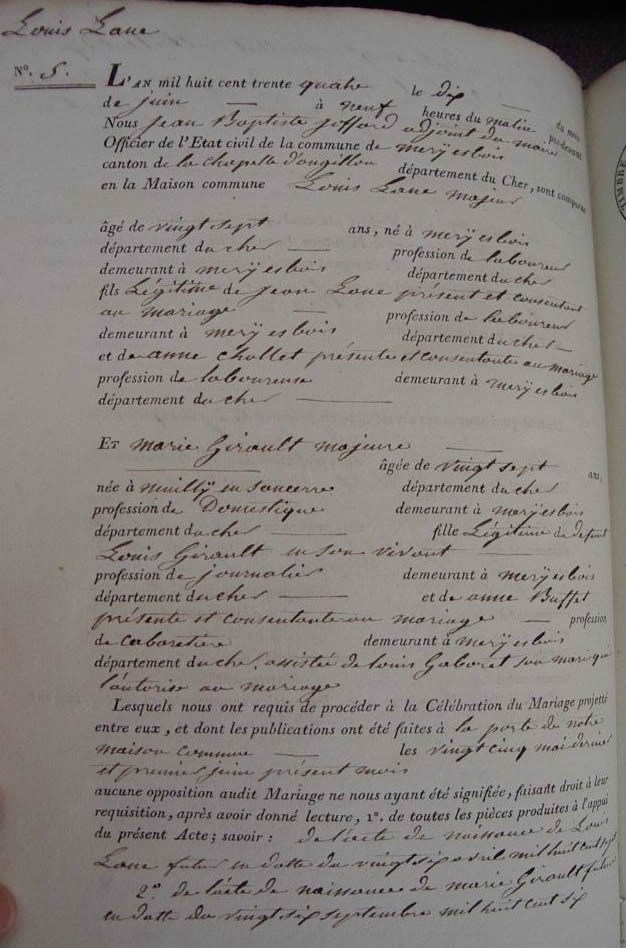 Louis Lane
N.º 5.
L'AN mil huit cent trente quatre le dix du mois
de juin à neuf heures du matin pardevant
Nous jean Baptiste joffard adjoint du maire
Officier de l'Etat civil de la commune de meryesbois
canton de la chapelle d'angillon département du Cher, sont comparus
en la Maison commune Louis Lane majeur
âgé de vingt sept ans, né à meryesbois
département du cher profession de laboureur
demeurant à meryesbois département du cher
fils Légitime de jean Lane présent et consentant
au mariage profession de laboureur
demeurant à meryesbois département du cher
et de anne chollet présente et consentante au mariage
profession de laboureuse demeurant à meryesbois
département du cher
ET marie Girault majeure
âgée de vingt sept ans,
née à neuilly en sancerre département du cher
profession de Domestique demeurant à meryesbois
département du cher fille Légitime de defunt
Louis Girault en son vivant
profession de journalier demeurant à meryesbois
département du cher et de anne Buffet
présente et consentante au mariage profession
de cabaretière demeurant à meryesbois
département du cher, assistée de Louis Gaboret son mari qui
l'autorise au mariage
Lesquels nous ont requis de procéder à la Célébration du Mariage projetté
entre eux, et dont les publications ont été faites à la porte de notre
maison commune les vingt cinq mai dernier
et premier juin présent mois
aucune opposition audit Mariage ne nous ayant été signifiée, faisant droit à leur
requisition, après avoir donné lecture, 1º. de toutes les pièces produites à l'appui
du présent Acte; savoir: de l'acte de naissance de Louis
Lane futur en datte du vingt six avril mil huit cent sept
2º. de l'acte de naissance de marie Girault future
en datte du vingt six septembre mil huit cent six
TIMBRE